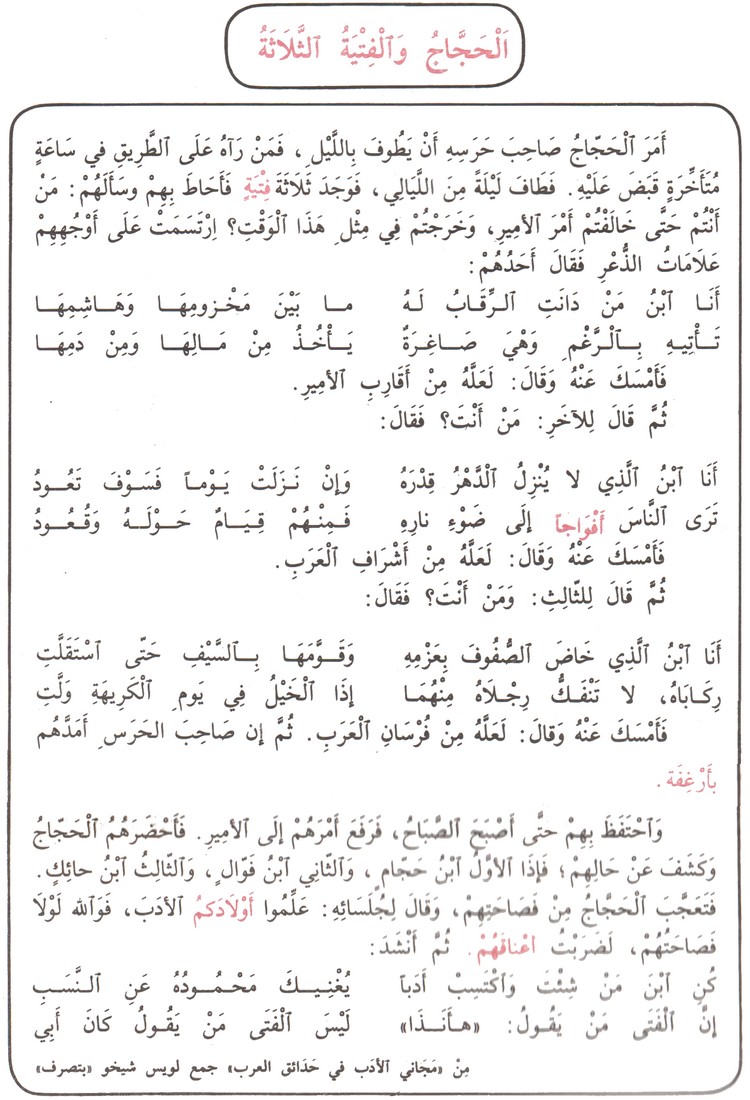 اَلْحَجَّاجُ وَٱلْفِتْيَةُ ٱلثَّلَاثَةُ
أَمَرَ ٱلْحَجّاجُ صَاحِبَ حَرَسِهِ أَنْ يَطُوفَ بِاللَّيْلِ ، فَمَنْ رَآهُ عَلَى ٱلطَّرِيقِ في سَاعَةٍ
مُتَأَخِّرَةٍ قَبَضَ عَلَيْهِ. فَطَافَ لَيْلَةً مِنَ اللَّيَالِي، فَوَجَدَ ثَلَاثَةَ فِتْيَةٍ فَأَحَاطَ بِهِمْ وَسَأَلَهُمْ: مَنْ
أَنْتُمْ حَتَّى خَالَفْتُمْ أَمْرَ الأَمِيرِ، وَخَرَجْتُمْ فِي مِثْلِ هَذَا ٱلْوَقْتِ؟ اِرْتَسَمَتْ عَلَى أَوْجُهِهِمْ
عَلَامَاتُ الذُّعْرِ فَقَالَ أَحَدُهُمْ:
أَنَـا ٱبْنُ مَنْ دَانَتِ ٱلـرِّقَابُ لَـهُ مـا بَيْنَ مَخْـزومِهَـا وَهَـاشِمِهَـا
تَـأْتِيهِ بِـالْـرَّغْمِ وَهْيَ صَـاغِـرَةٌ يَـأْخُـذُ مِنْ مَـالِهَـا وَمِنْ دَمِهَـا
فَأَمْسَكَ عَنْهُ وَقَالَ: لَعَلَّهُ مِنْ أَقَارِبِ الأَمِيرِ.
ثُمَّ قَالَ لِلآخَرِ: مَنْ أَنْتَ؟ فَقَالَ:
أَنَا ٱبْنُ ٱلَّذِي لا يُنْزِلُ ٱلْدَّهْرُ قِدْرَهُ وَإِنْ نَـزَلَتْ يَـوْمـاً فَسَـوْفَ تَعُـودُ
تَرَى ٱلنَّاسَ أَفْوَاجاً إِلَى ضَوْءِ نارِهِ فَـمِنْـهُمْ قِيَـامٌ حَـوْلَـهُ وَقُـعُـودُ
فَأَمْسَكَ عَنْهُ وَقَالَ: لَعَلَّهُ مِنْ أَشْرَافِ ٱلْعَرَبِ.
ثُمَّ قَالَ لِلثّالِثِ: وَمَنْ أَنْتَ؟ فَقَالَ:
أَنَا ٱبْنُ ٱلَّذِي خَاضَ ٱلصُّفُوفَ بِعَزْمِهِ وَقَـوَّمَهَـا بِـٱلسَّيْفِ حَتّى ٱسْتَقَلَّتِ
رِكَـابَاهُ، لا تَنْفَكُّ رِجْـلَاهُ مِنْهُمَـا إِذَا ٱلْخَيْلُ فِي يَومِ ٱلْكَرِيهَةِ وَلَّتِ
فَأَمْسَكَ عَنْهُ وَقالَ: لَعَلَّهُ مِنْ فُرْسَانِ ٱلْعَرَبِ. ثُمَّ إن صَاحِبَ الحَرَسِ أَمَدَّهُم
بأَرْغِفَة .
وَٱحْتَفَظَ بِهِمْ حتَّى أَصْبَحَ ٱلصَّبَاحُ، فَرَفَعَ أَمْرَهُمْ إلى الأَمِيرِ. فَأَحْضَرَهُمُ ٱلْحَجّاجُ
وَكَشَفَ عَنْ حَالِهِمْ؛ فَإِذَا الأَوَّلُ ٱبْنُ حَجّامٍ ، وَٱلثَّانِي ٱبْنُ فَوّالٍ، وَٱلثّالِثُ ٱبْنُ حائِكٍ.
فَتَعَجَّبَ ٱلْحَجَّاجُ مِنْ فَصَاحَتِهِمْ، وَقَالَ لِجُلَسَائِهِ: عَلِّمُوا أَوْلَادَكُمُ الأَدَبَ، فَوَٱلله لَوْلَا
فَصَاحَتُهُمْ، لَضَرَبْتُ اعْناقَهُمْ. ثُمَّ أَنْشَدَ:
كُنِ ٱبْنَ مَنْ شِئْتَ وَٱكْتَسِبْ أَدَباً يُغْنِيـكَ مَحْـمُـودُهُ عَنِ ٱلـنَّسَبِ
إنَّ ٱلْفَتَى مَنْ يَقُولُ: «هـأَنَـذَا» لَيْسَ ٱلْفَتَى مَنْ يَقُولُ كَانَ أَبِي
مِنْ «مَجَاني الأَدَب في حَدَائق العرب» جمع لويس شيخو «بتصرف»